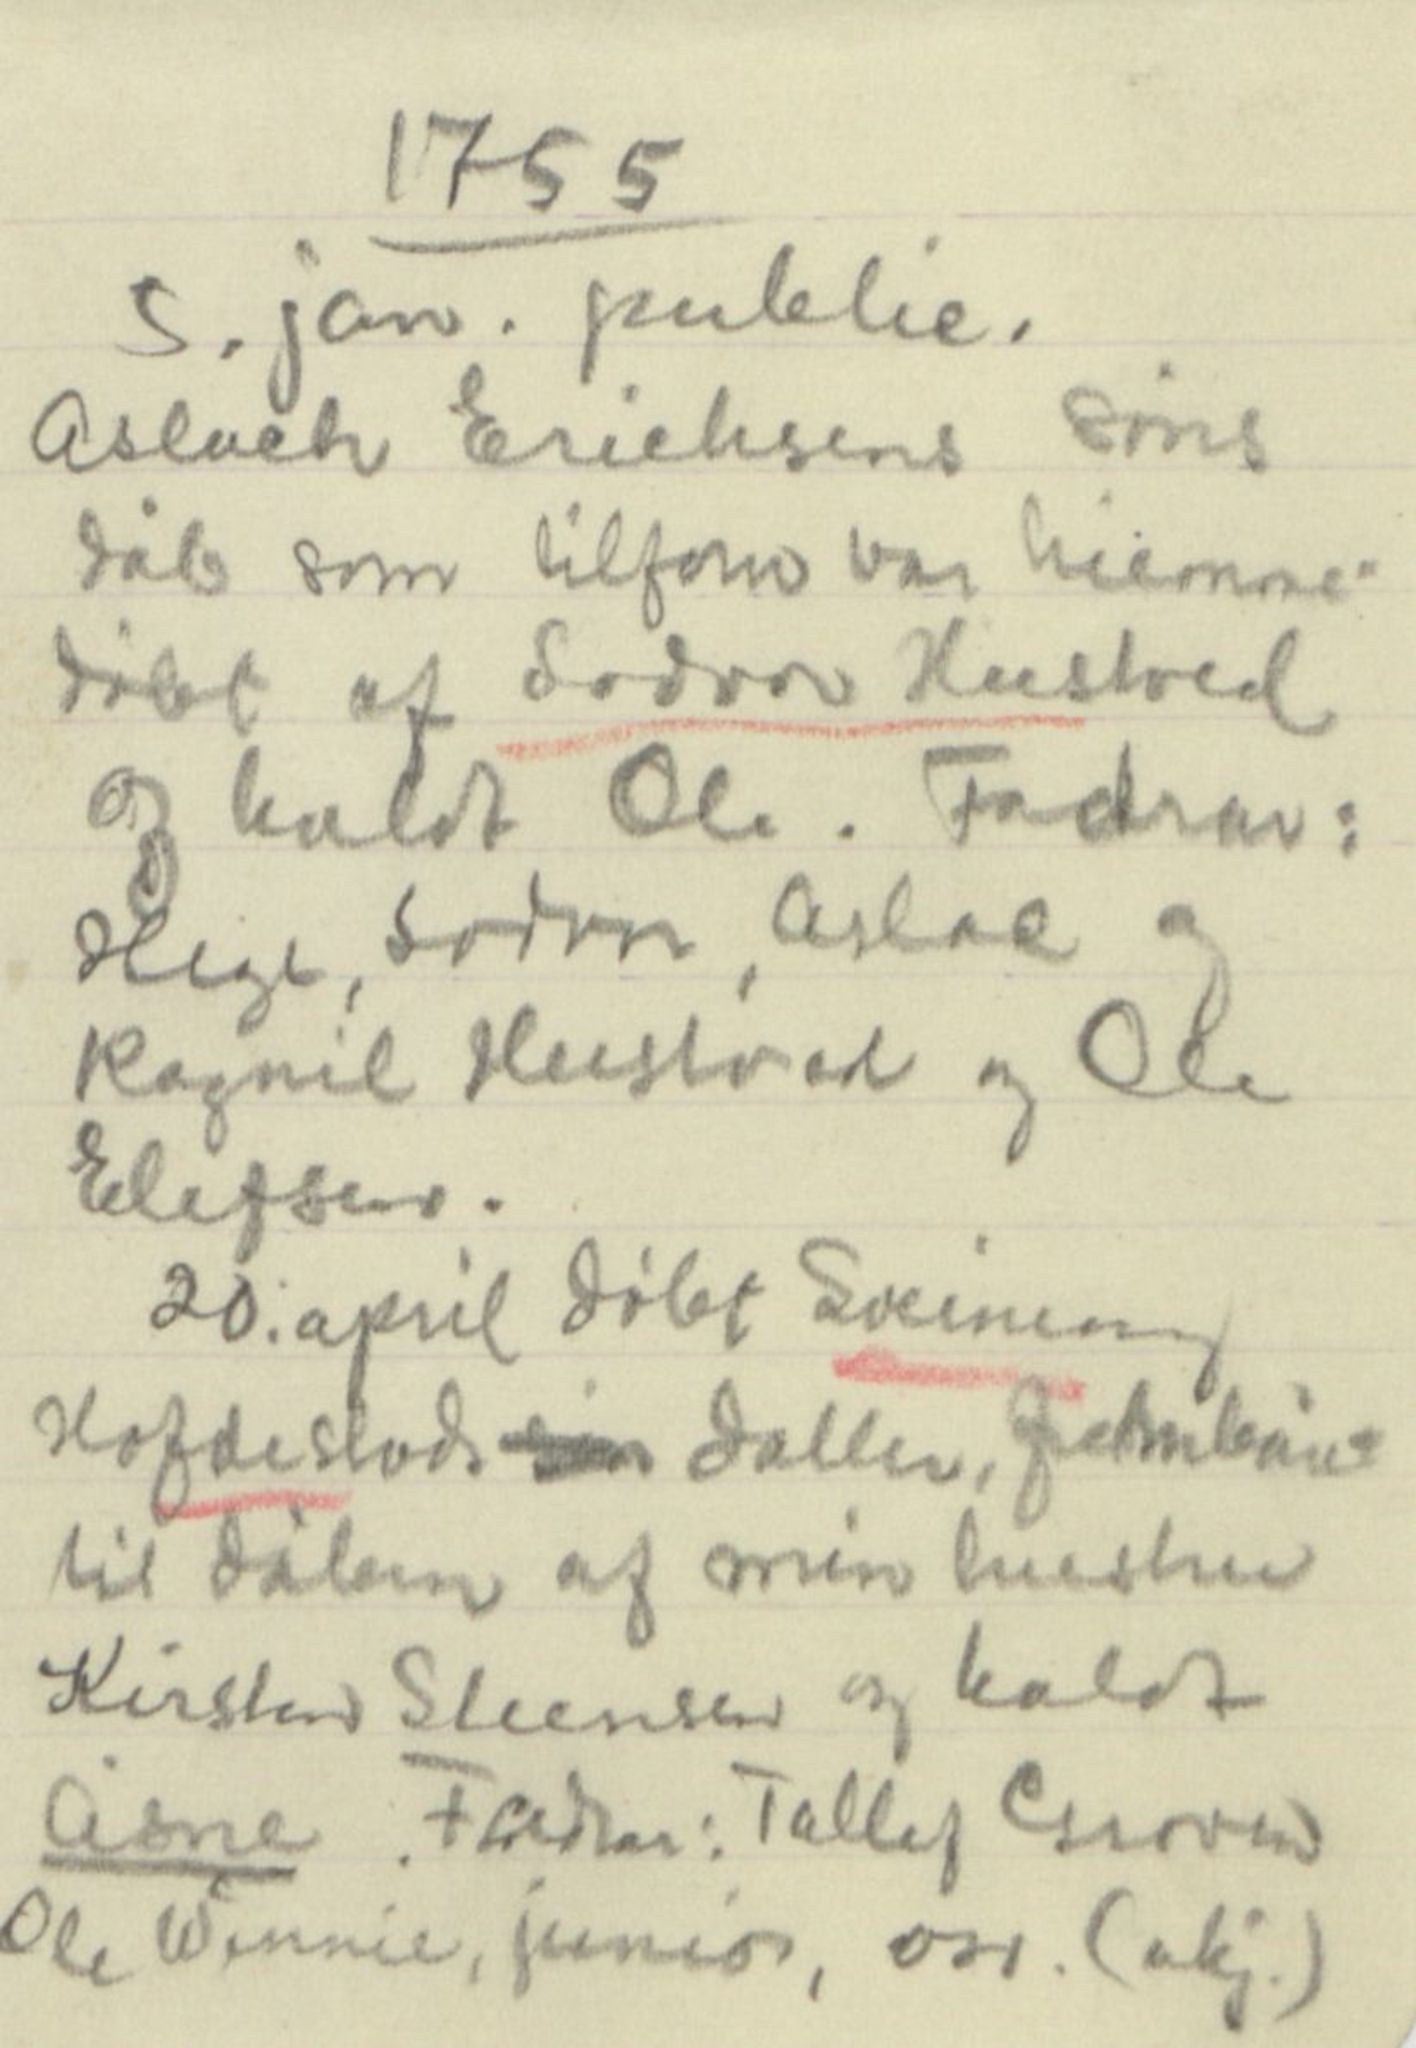 1755
5. jan. public.
Aslach Erichsens søns
dåb som tilforn var hiemme-
døbt af Sodvor Hustved
og kaldt Ole. Fadrar:
Hege, Sodvor, Aslac og
Ragnil Hustvad og Ole
Elefsen.
20. april døbt Sveinung
Hofdestads datter, frembår-
til dåben af min huestru
Kirsten Steensen og kaldt
Åsne. Fadrar: Tallef Groven
Ole Vinnie, junior, osv. (ukj.)